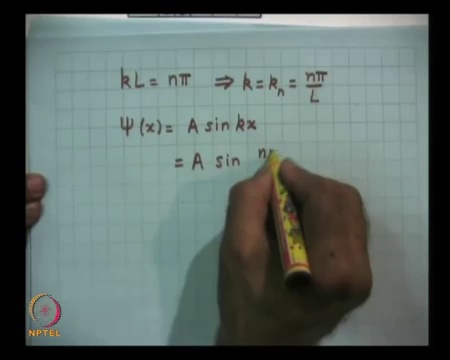 kL = nπ ⇒ k = kₙ = nπ/L
Ψ(x) = A sin kx
= A sin n
NPTEL